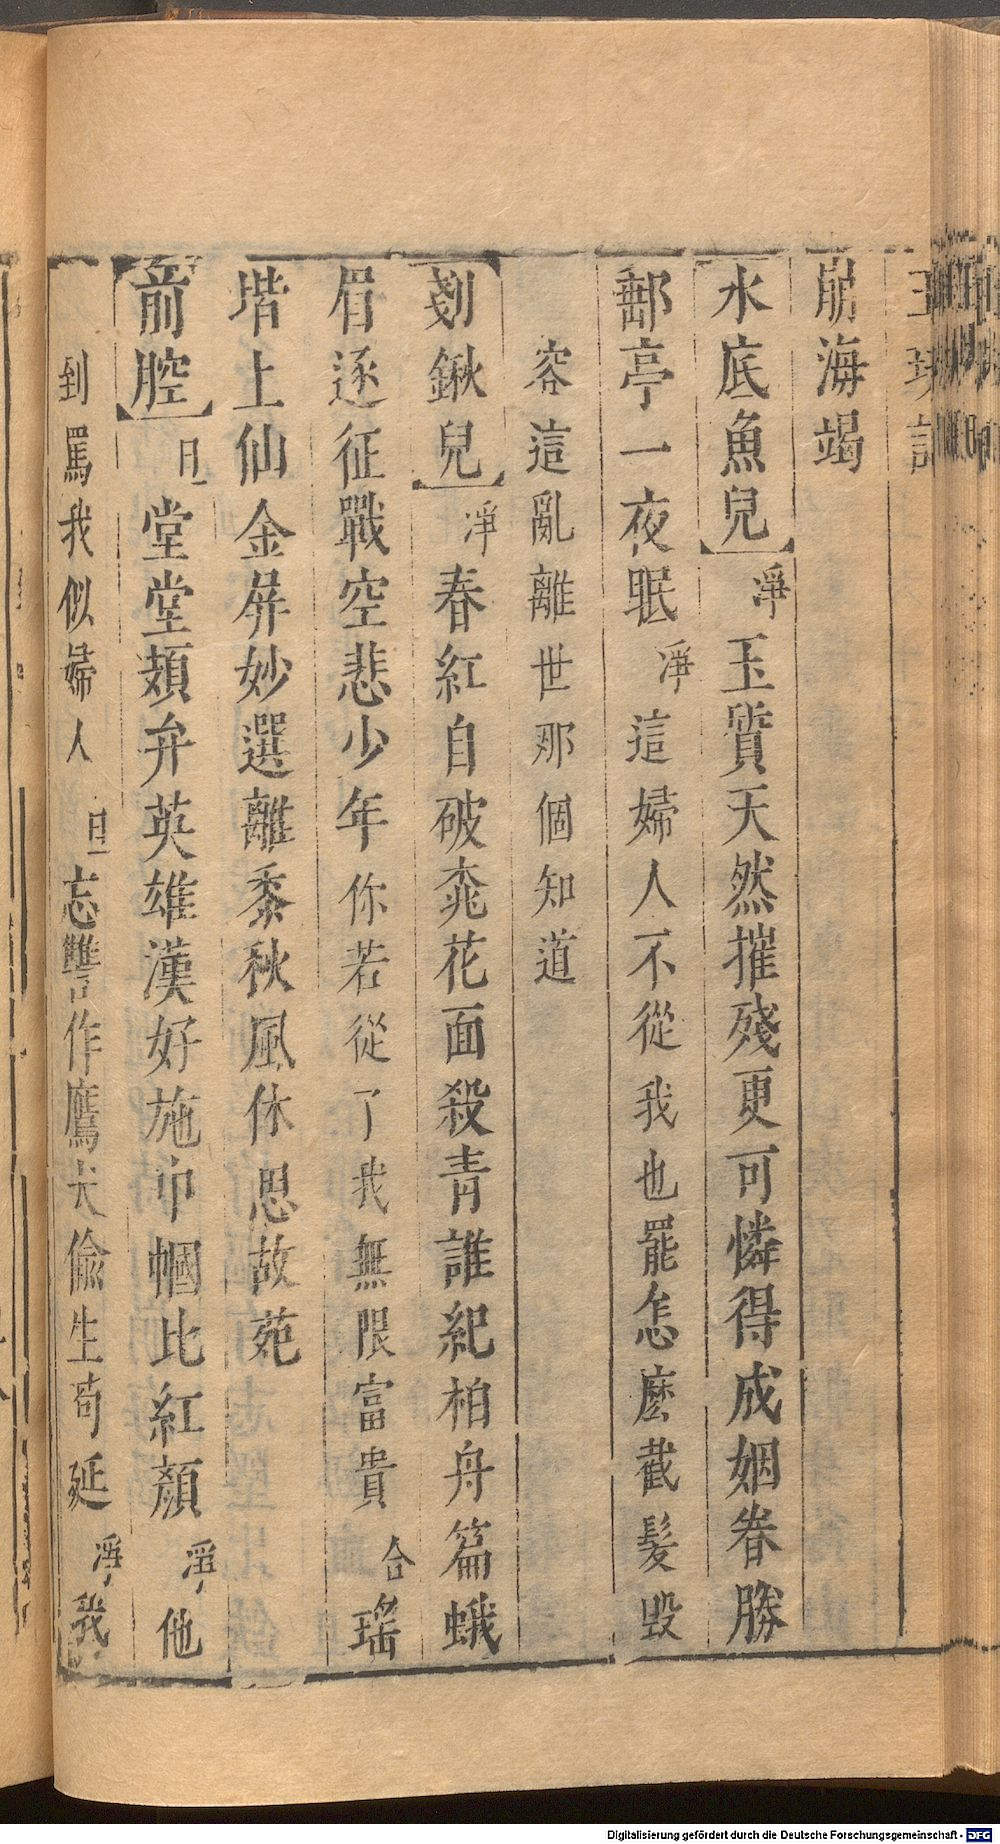 崩海竭
水底魚兒】淨玉質天然摧殘更可憐得成姻眷勝
郵亭一夜眠淨這婦人不從我也罷怎麽截髮毀
容這亂離世那個知道
剗鍬兒】淨春紅自破桃花面殺青誰紀柏舟篇蛾
眉逐征戰空悲少年你若從了我無限富貴合瑤
堦上仙金屏妙選離黍秋風休思故苑
【前腔】旦堂堂頍弁英雄漢好施巾幗比紅顏淨他
到罵我似婦人旦忘讐作鷹犬偷生苟延淨我
Digitalisierung gefördert durch die Deutsche Forschungsgemeinschaft - DFG